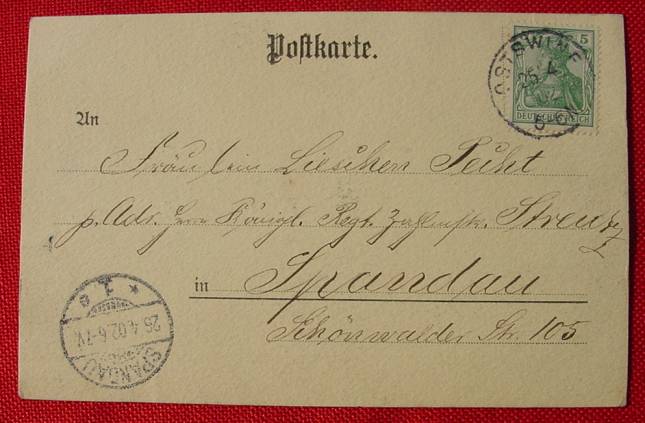 Postkarte.
5
DEUTSCHES REICH
OSTSWINE
25 4
An
Fräulein Lieschen Peiht
p. Adr. Herrn Königl. Regt. Zahlmstr. Streutz
in Spandau
Schönwalder Str. 105
26.4.02.6-7V.
SPANDAU